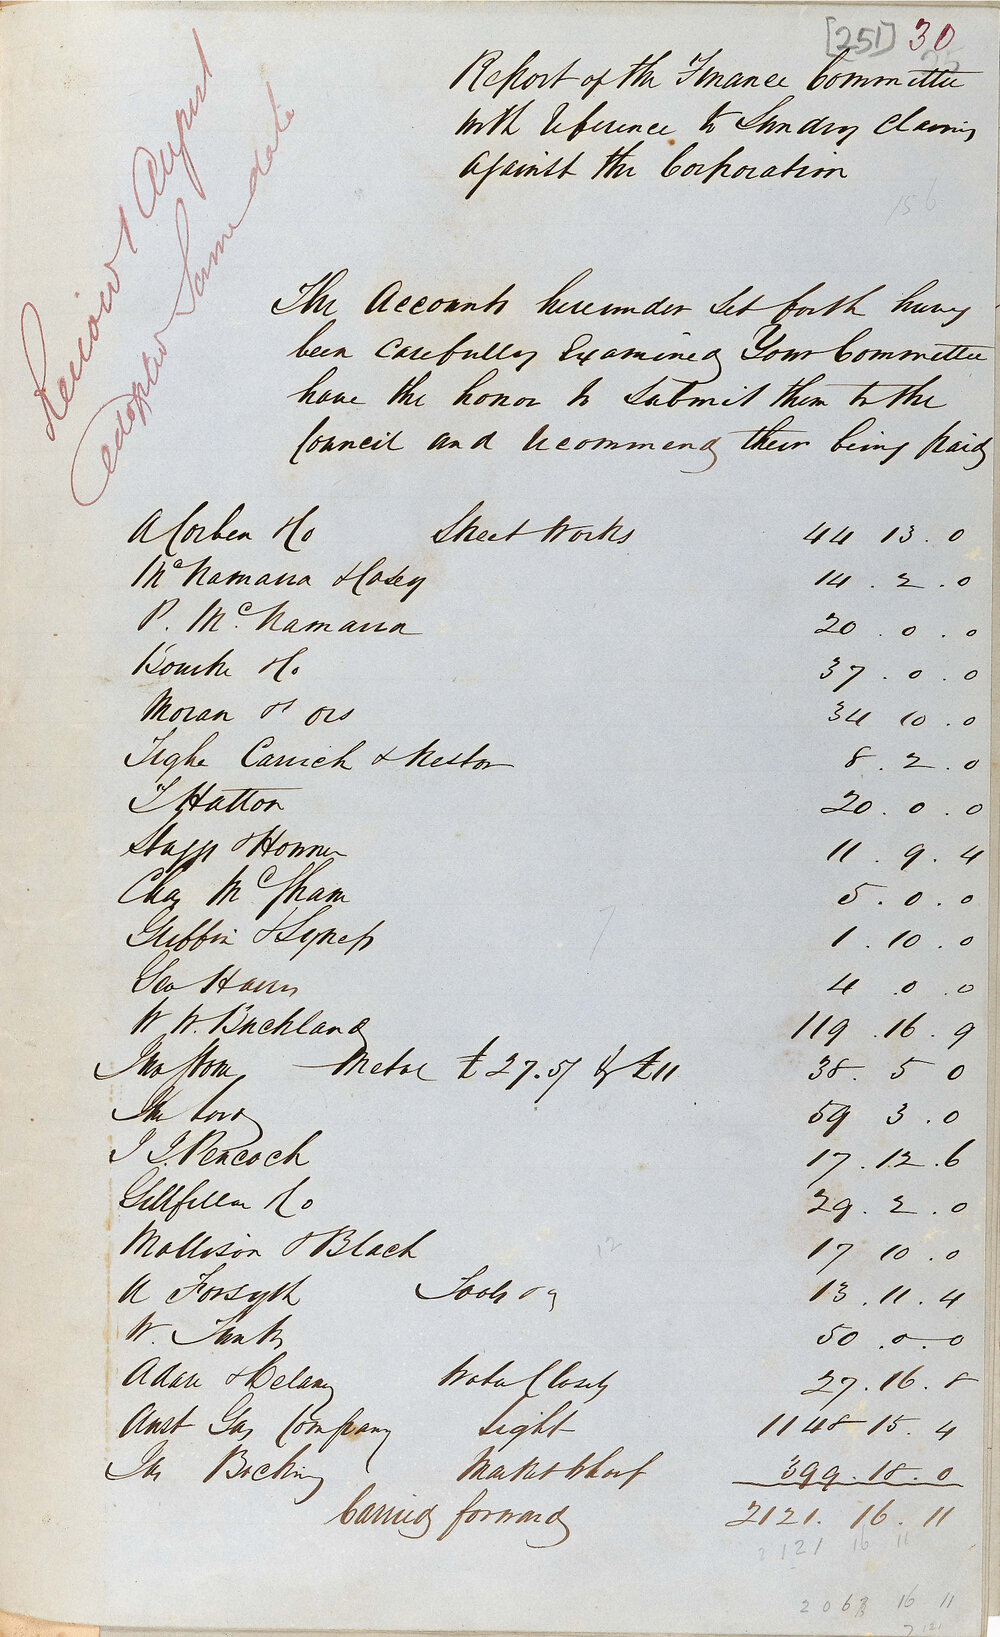 [251] 30
Report of the Finance Committee
with reference to Sundry Claims
against the Corporation
156
Received 1 August
Adopted Same date
The Accounts hereunder set forth having
been Carefully Examined Your Committee
have the honor to Submit them to the
Council and recommend their being paid
A Corben & Co Street Works 44 13. 0
McNamara & Casey 14 . 2 . 0
P. McNamara 20 . 0 . 0
Bourke & Co 37 . 0 . 0
Moran & ors 34 10 . 0
Tighe Carrick & Nestor 8 . 2 . 0
T Hatton 20 . 0 . 0
Stagg & Honner 11 . 9 . 4
Chas McSham 5 . 0 . 0
Griffin & Lynch 1 . 10 . 0
Geo Harris 4 . 0 . 0
W W. Buckland 119 . 16 . 9
Metal £27.5/ & £11 38 . 5 0
59 3 . 0
J J. Peacock 17 . 12 . 6
Gillfillan & Co 29 . 2 . 0
Mollison & Black 17 10 . 0
A Forsyth Tools &c 13 . 11 . 4
W. 50 . 0 . 0
Adam & Delany Water Closets 27 . 16 . 8
Aust Gas Company Light 1148 15 . 4
Jas Bocking Market Wharf 399 . 18 . 0
Carried forward 2121 . 16 . 11
2121 16 11
2063 16 11